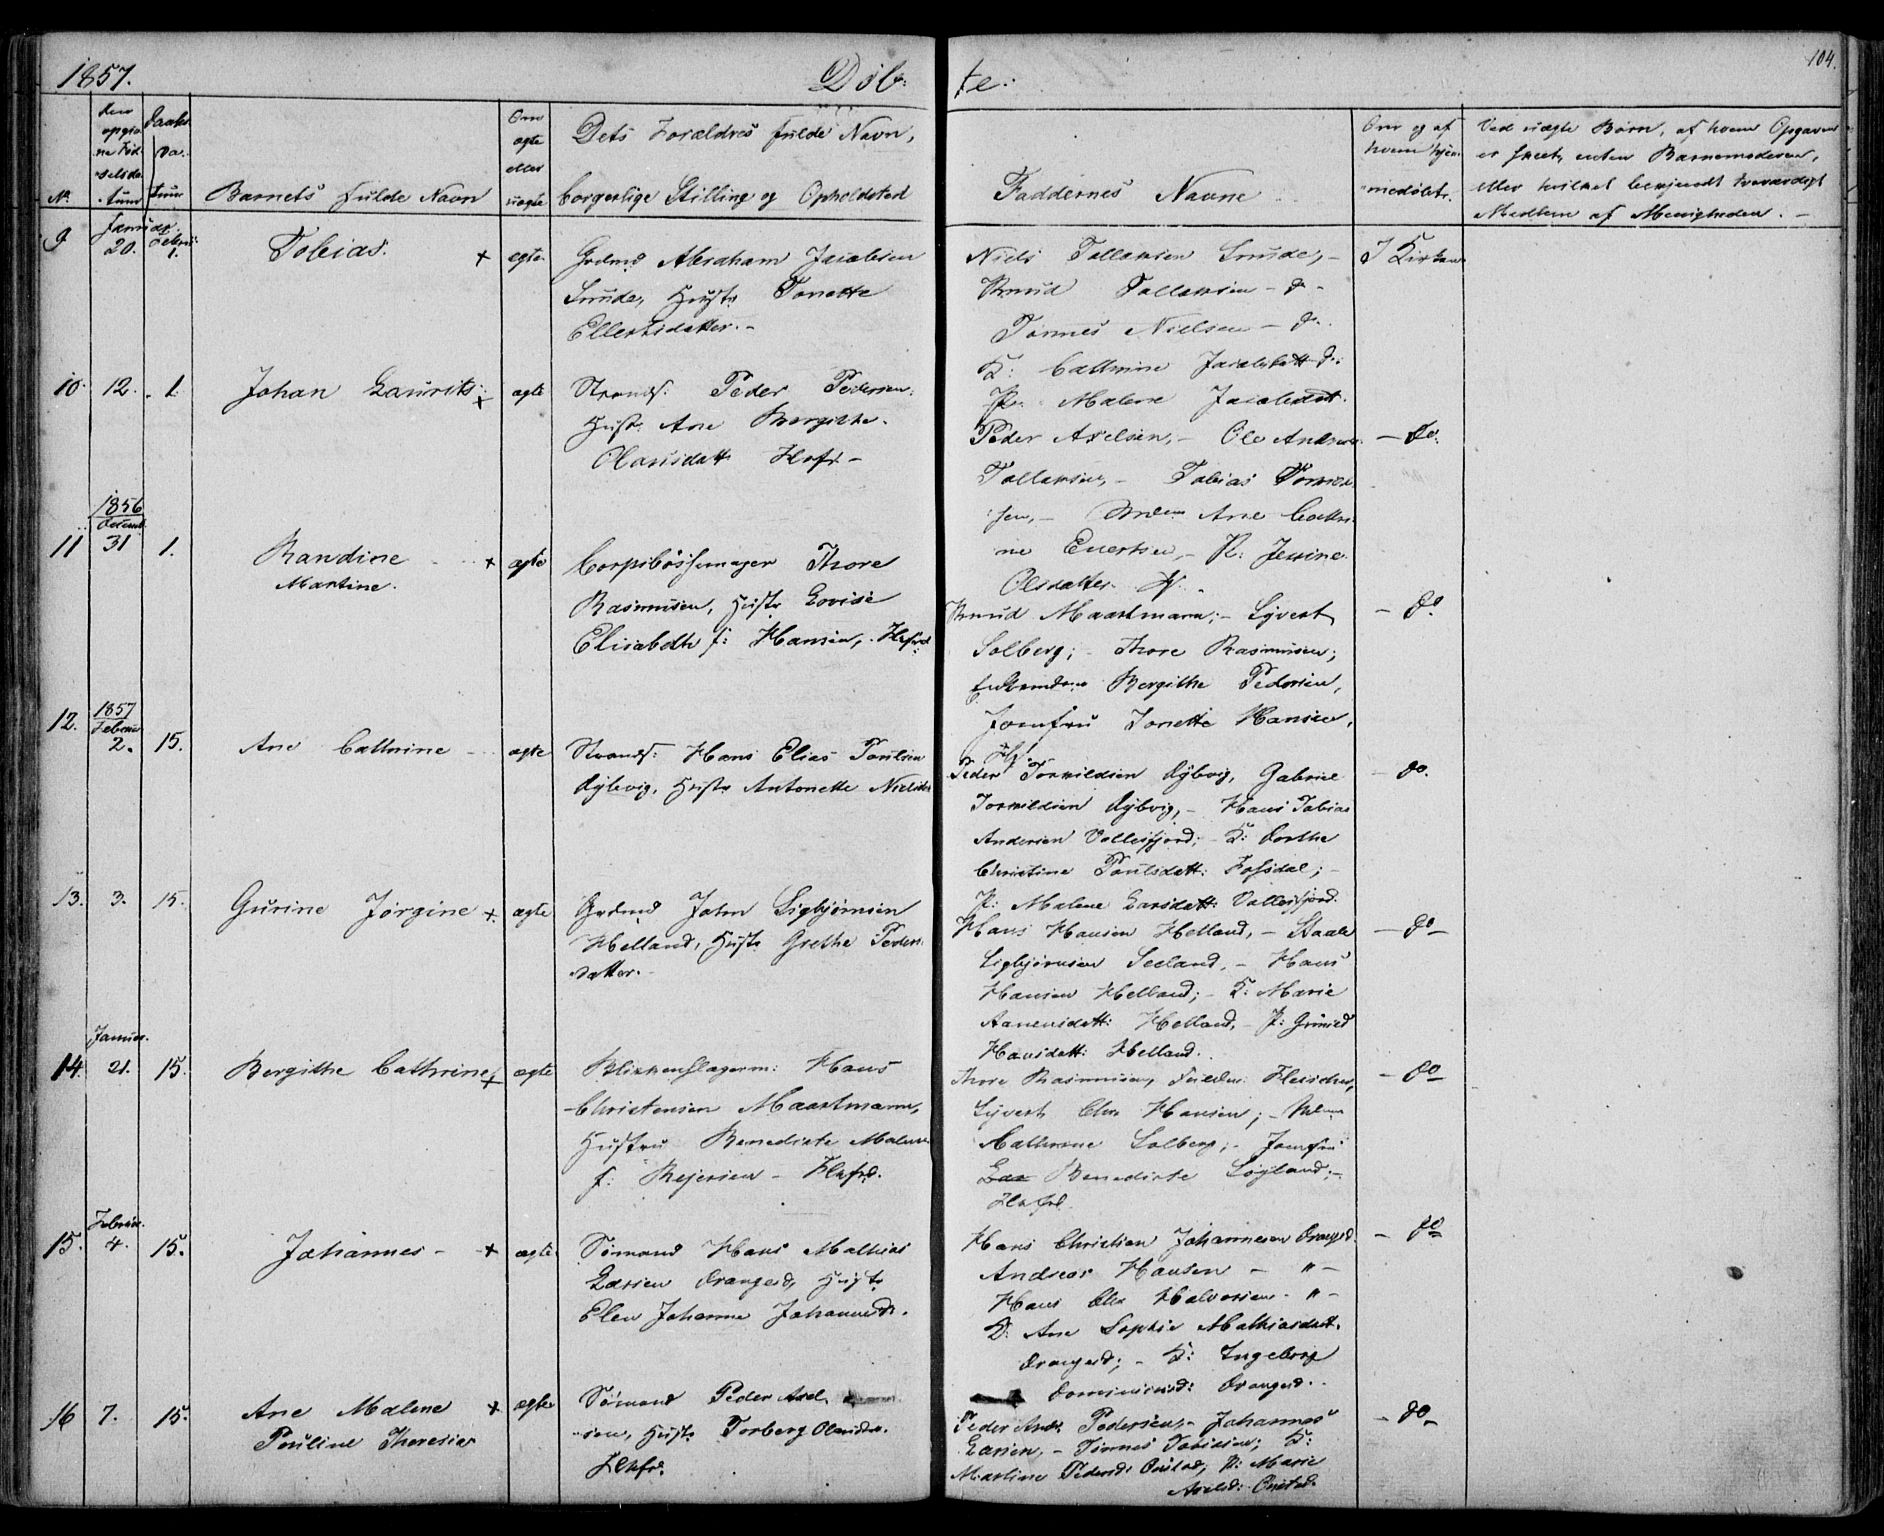 1857.
Døb-
te.
104.
No.
Den opgivne Fødselsdatum
Daabsdatum
Barnets fulde Navn
Om ægte eller uægte
Dets Forældres fulde Navn,
borgerlige Stilling og Opholdsted
Faddernes Navne
Om og af hvem hjemmedøbt.
Ved uægte Børn, af hvem Opgaven
er skeet, enten Barnemoderen,
eller hvilket bekjendt troværdigt
Medlem af Menigheden.
9
Januar
20.
Febru:
1.
Tobias.
+
ægte
Grdmd Abraham Jacobsen
Snude, Hustr Tonette
Ellertsdatter.
Niels Tollaksen Snude,
Knud Tollaksen - do -
Tønnes Nielsen - do.
K: Cathrine Jacobsdatt do.
P. Malene Jacobsdat.
I Kirken
10.
12.
1.
Johan Laurits
+
ægte
Strands: Peder Pedersen.
Hust. Ane Bergithe
Olausdatt Flkfr. -
Peder Axelsen, - Ole Andreas
Tollaksen, - Tobias Tønnes
sen, - Ane Cathri
ne Evertsen, - P: Jessine
Olsdatter.
- do.
11
1856
Decemb
31
1.
Randine
Martine.
+
ægte
Corpsbøssemager Thore
Rasmusen, Hustr Lovise
Elisabeth f: Hansen, Flkfrd
Knud Maartmann; - Syvert
Solberg; - Thore Rasmusen;
Bergithe Pedersen,
Jomfru Tonette Hansen,
- do.
12.
1857
Februar
2.
15.
Ane Cathrine
ægte
Strands: Hans Elias Poulsen
Dybvig, Hustr Antonette Nielsd
Peder Torkildsen Dybvig, Gabriel
Torkildsen Dybvig, - Hans Tobias
Andersen Vollesfjord; - K: Dorthe
Christine Poulsdatt: Fossdal; -
P: Malene Larsdatt: Vollesfjord.
- do.
13.
3.
15.
Gurine Jørgine
+
ægte
Grdmd John Sigbjørnsen
Helland, Hustr Grethe Peders
datter.
Hans Hansen Helland, - Staale
Sigbjørnsen Seeland, - Hans
Hansen Helland; - K: Marie
Aanensdatt: Helland, - P: Gunild
Hansdatt: Helland.
- do -
14.
Januar.
21.
15.
Bergithe Cathrine
+
ægte
Blikkenslagerm: Hans
Christensen Maartmann,
Hustru Benedicte Malene
f: Rejersen - Flkfd.
Thore Rasmusen, Fleischer,
Syvert Chr Hansen; -
Cathrine Solberg; - Jomfru
Benedicte Løgland; -
Flkfd.
- do -
15.
Februar.
4.
15.
Johannes
+
ægte
Sømand Hans Mathias
Larsen Drangesd, Hustr
Elen Johanne Johannesd.
Hans Christian Johannesen Drangsd.
Andreas Hansen - " -
Hans Chr Halvorsen - " -
K: Ane Sophie Mathiasdatt.
Drangesd; - K: Ingeborg
Drangesd.
- do
16
7.
15.
Ane Malene
Pauline Theresia
+
ægte
Sømand Peder Axel
sen, Hustr Torberg Olausdtr.
Flkfr.
Peder Andr. Pedersen, - Johannes
Larsen, - Tønnes Tobiasen; K:
Martine Pedersd: Onstad; P: Marie
Axelsd: Onstad
- do -